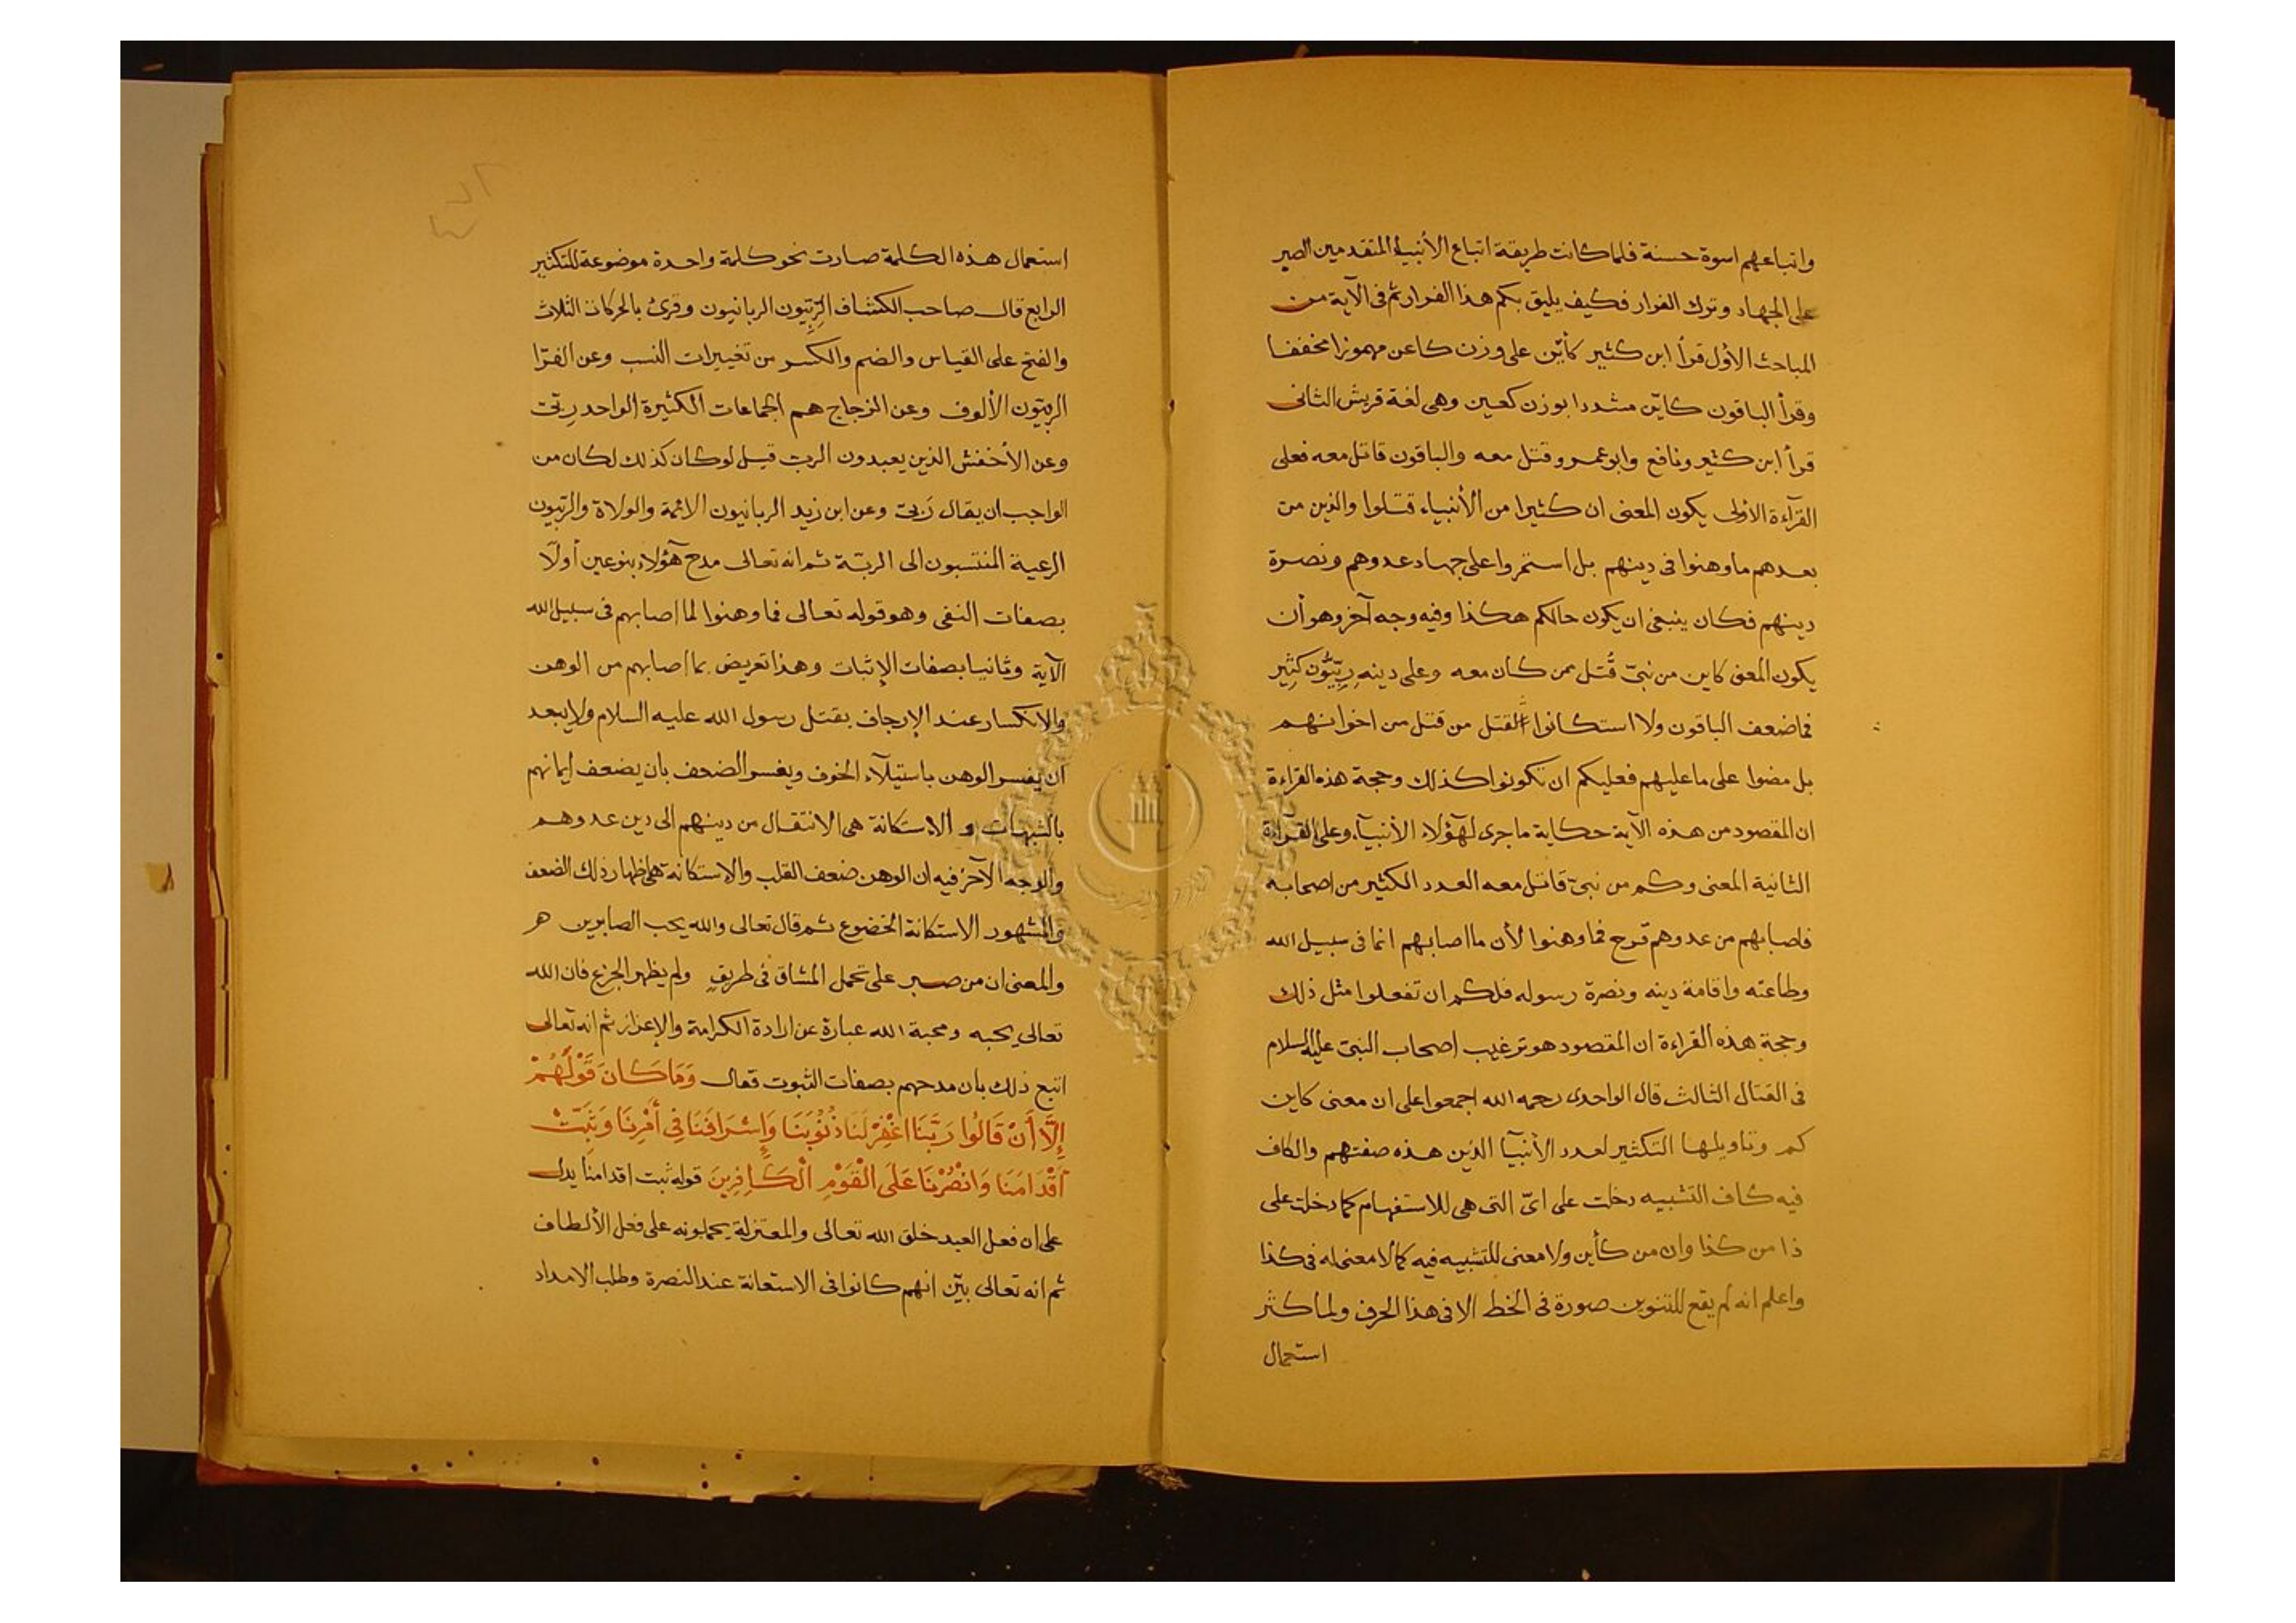 واتباعهم اسوة حسنة فلما كانت طريقة اتباع الأنبياء المتقدمين الصبر
على الجهاد وترك الفرار فكيف يليق بكم هذا الفرار ثم فى الآية من
المباحث الاول قرأ ابن كثير كأين على وزن كاعن مهموزا مخففا
وقرأ الباقون كايّن مشددا بوزن كعين وهى لغة قريش الثانى
قرأ ابن كثير ونافع وابو عمرو قتل معه والباقون قاتل معه فعلى
القرآءة الاولى يكون المعنى ان كثيرا من الأنبياء قتلوا والذين من
بعدهم ما وهنوا فى دينهم بل استمروا على جهاد عدوهم ونصرة
دينهم فكان ينبغى ان يكون حالكم هكذا وفيه وجه آخر وهو أن
يكون المعنى كاين من نبىّ قُتل ممن كان معه وعلى دينه رِبِّيُّون كثِير
فما ضعف الباقون ولا استكانوا القتل من قتل من اخوانهم
بل مضوا على ما عليهم فعليكم ان تكونوا كذلك وحجة هذه القراءة
ان المقصود من هذه الآية حكاية ما جرى لهؤلاء الأنبيآء وعلى القرآءة
الثانية المعنى وكم من نبىّ قاتل معه العدد الكثير من اصحابه
فاصابهم من عدوهم قرح فما وهنوا لأن ما اصابهم انما فى سبيل الله
وطاعته واقامة دينه ونصرة رسوله فلكم ان تفعلوا مثل ذلك
وحجة هذه القراءة ان المقصود هو ترغيب اصحاب النبىّ عليه السلام
فى القتال الثالث قال الواحدى رحمه الله اجمعوا على ان معنى كاين
كم وتاويلها التكثير لعدد الأنبيآ الذين هذه صفتهم والكاف
فيه كاف التشبيه دخلت على اىّ التى هى للاستفهام كما دخلت على
ذا من كذا وان من كأين ولا معنى للتشبيه فيه كما لا معنى له فى كذا
واعلم انه لم يقع للتنوين صورة فى الخط الا فى هذا الحرف ولما كثر
استعمال
استعمال هذه الكلمة صارت نحو كلمة واحدة موضوعة للتكثير
الرابع قال صاحب الكشاف الرِّبِّيون الربانيون وقرئ بالحركات الثلاث
والفتح على القياس والضم والكسر من تغييرات النسب وعن الفرّا
الربيّون الألوف وعن الزجاج هم الجماعات الكثيرة الواحد رِبّى
وعن الأخفش الذين يعبدون الربّ قيل لو كان كذلك لكان من
الواجب ان يقال رَبىّ وعن ابن زيد الربانيون الائمة والولاة والربّيون
الرعية المنتسبون الى الربّ ثم انه تعالى مدح هؤلاء بنوعين أولًا
بصفات النفى وهو قوله تعالى فما وهنوا لما اصابهم فى سبيل الله
الآية وثانيا بصفات الإثبات وهذا تعريض بما اصابهم من الوهن
والانكسار عند الإرجاف بقتل رسول الله عليه السلام ولا يبعد
ان يفسر الوهن باستيلآء الخوف ويفسر الضعف بان يضعف ايمانهم
بالشبهات و الاستكانة هى الانتقال من دينهم الى دين عدوهم
والوجه الآخر فيه ان الوهن ضعف القلب والاستكانة هى اظهار ذلك الضعف
والمشهور الاستكانة الخضوع ثم قال تعالى والله يحب الصابرين هر
والمعنى ان من صبر على تحمل المشاق فى طريق ولم يظهر الجزع فان الله
تعالى يحبه ومحبة الله عبارة عن ارادة الكرامة والإعزاز ثم انه تعالى
اتبع ذلك بان مدحهم بصفات الثبوت فقال وَمَا كَانَ قَوْلَهُمْ
إِلَّا أَنْ قَالُوا رَبَّنَا اغْفِرْ لَنَا ذُنُوبَنَا وَإِسْرَافَنَا فِى أَمْرِنَا وَثَبِّتْ
أَقْدَامَنَا وَانْصُرْنَا عَلَى الْقَوْمِ الْكَافِرِينَ قوله ثبت اقدامنا يدل
على ان فعل العبد خلق الله تعالى والمعتزلة يحملونه على فعل الألطاف
ثم انه تعالى بيّن انهم كانوا فى الاستعانة عند النصرة وطلب الامداد